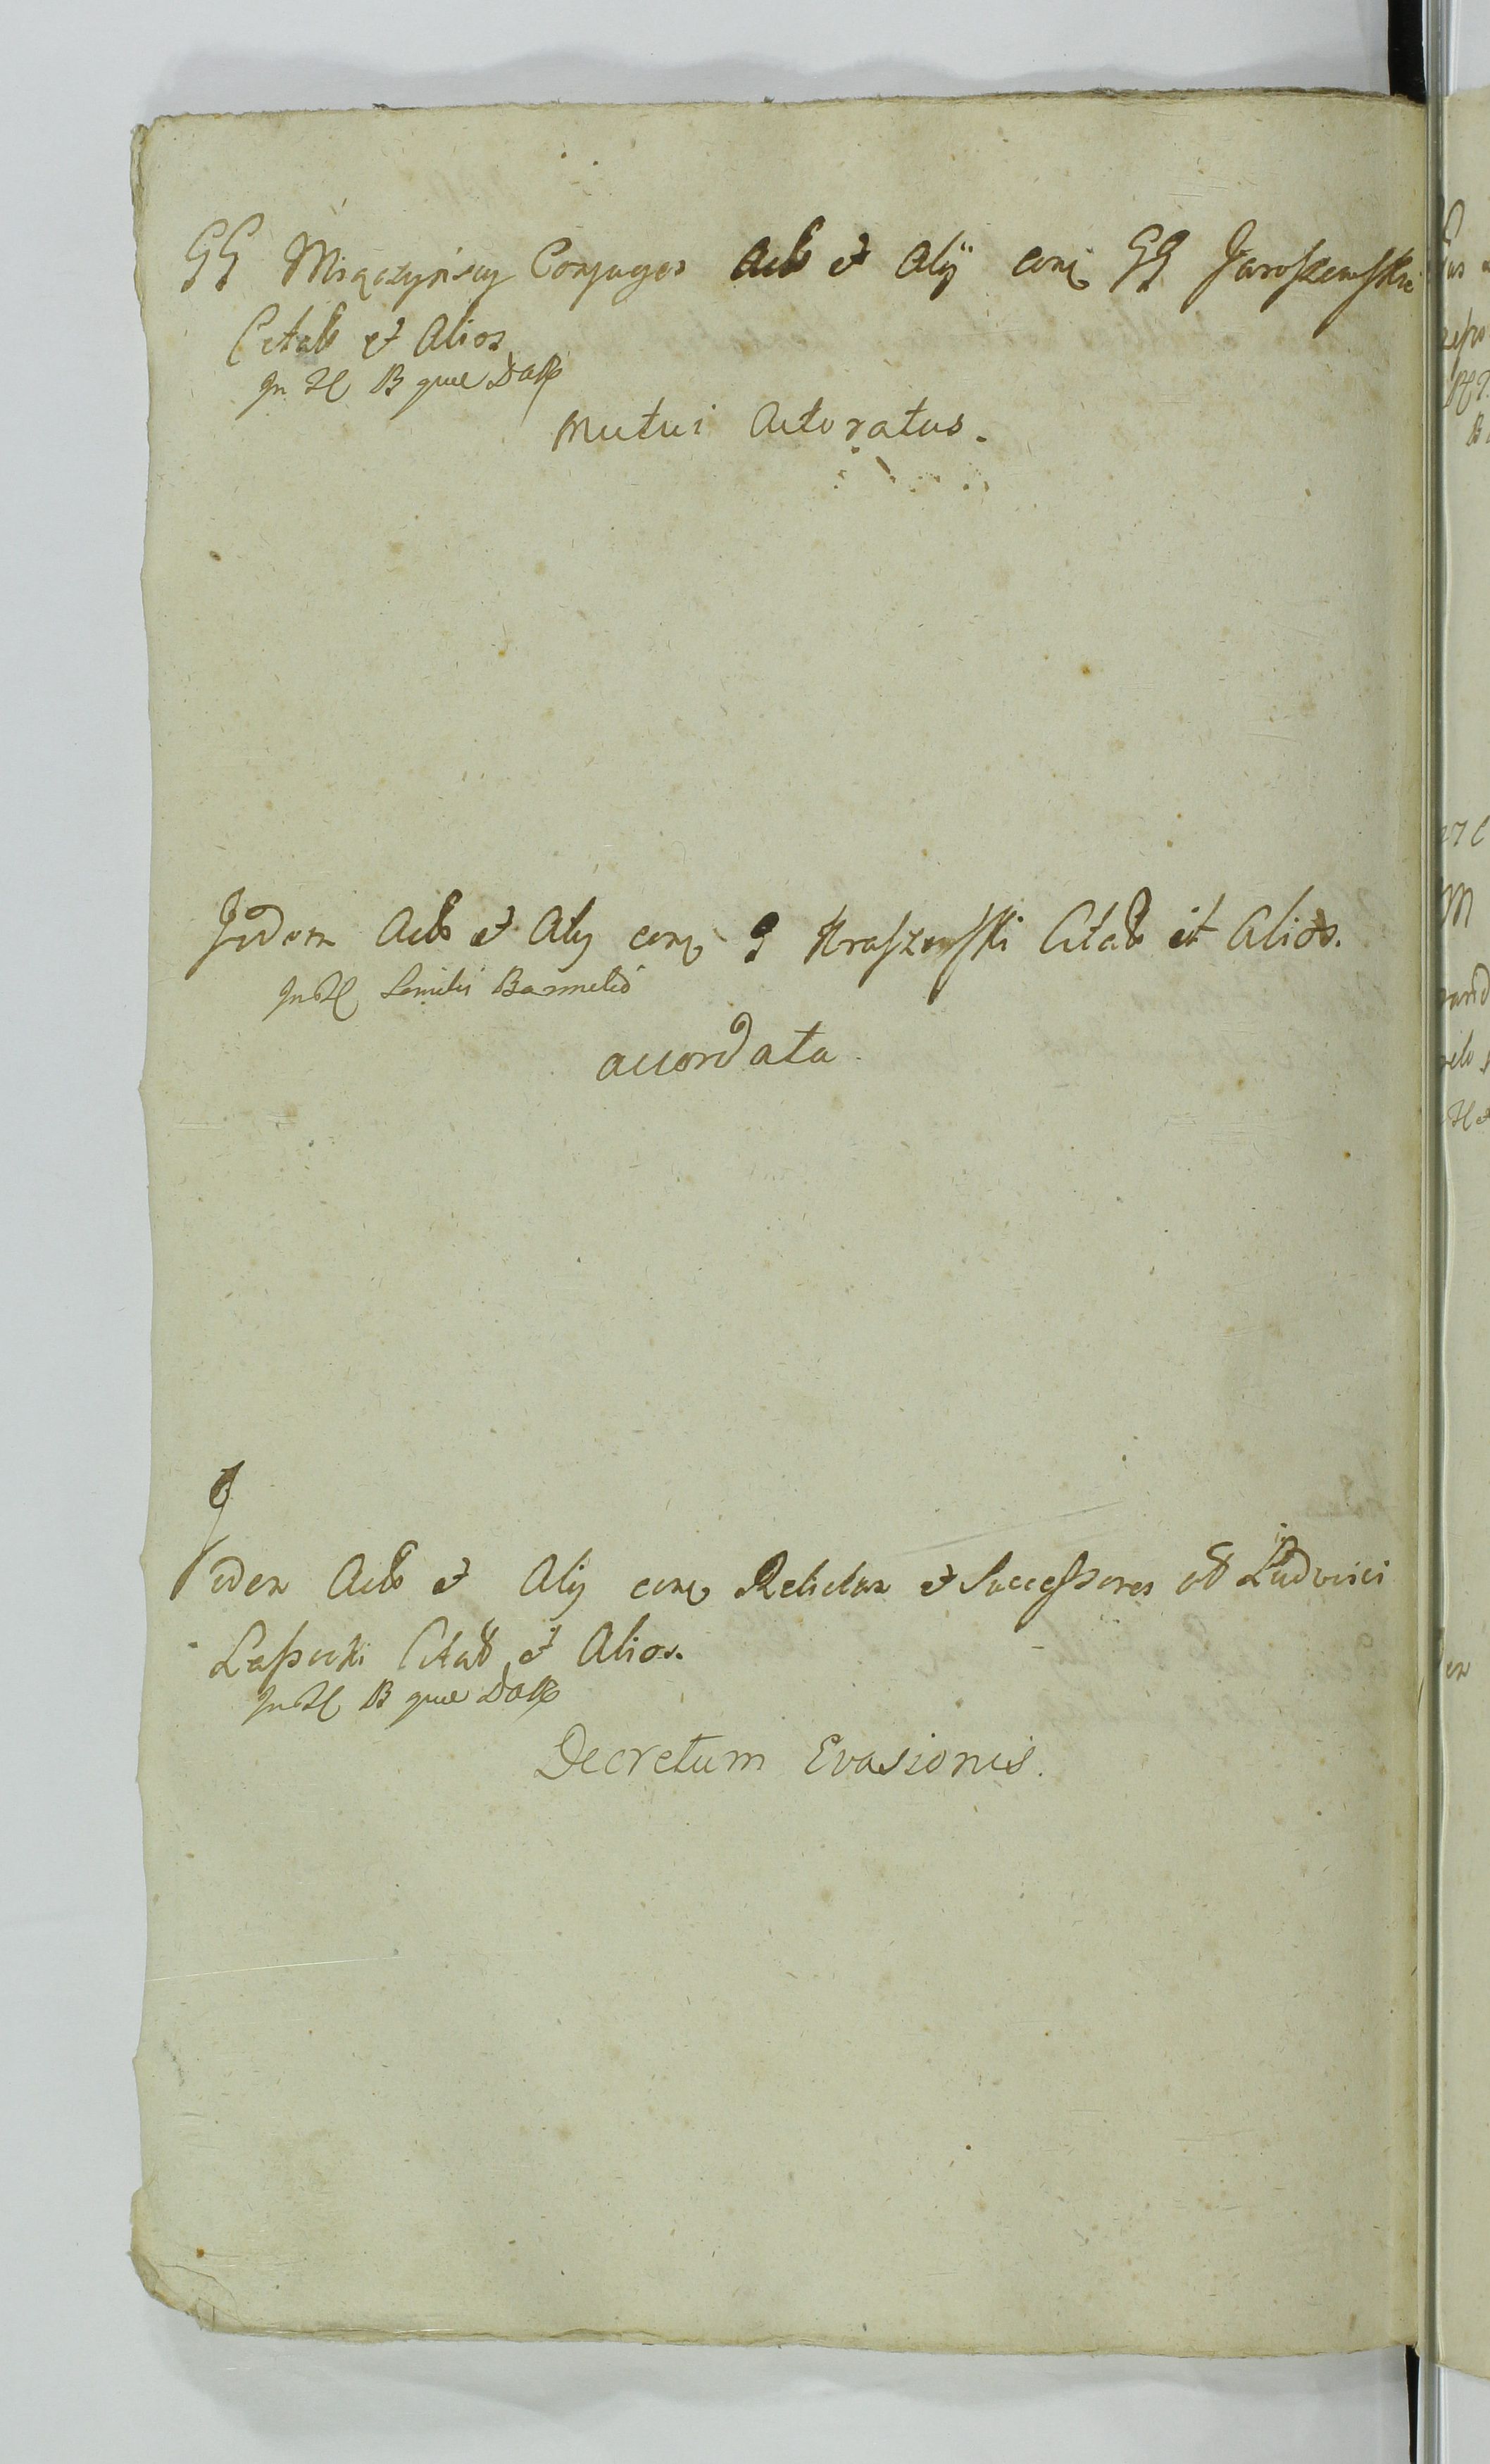 GG Miączyńscy Conjuges Acto et Alÿ conq GG Jaroszewski
Citato et Alios
In Rl B quae Dasto
Mutui Actoratus.
Iidem Acto et Aly conq G Kraszewski Citato et Alios.
In Rl Similis
accordata
Iidem Acto et Alij conq Relictam et Successores Ludovici
Citato et Alios.
In Rl B quae Dasto
Decretum Evasionis.